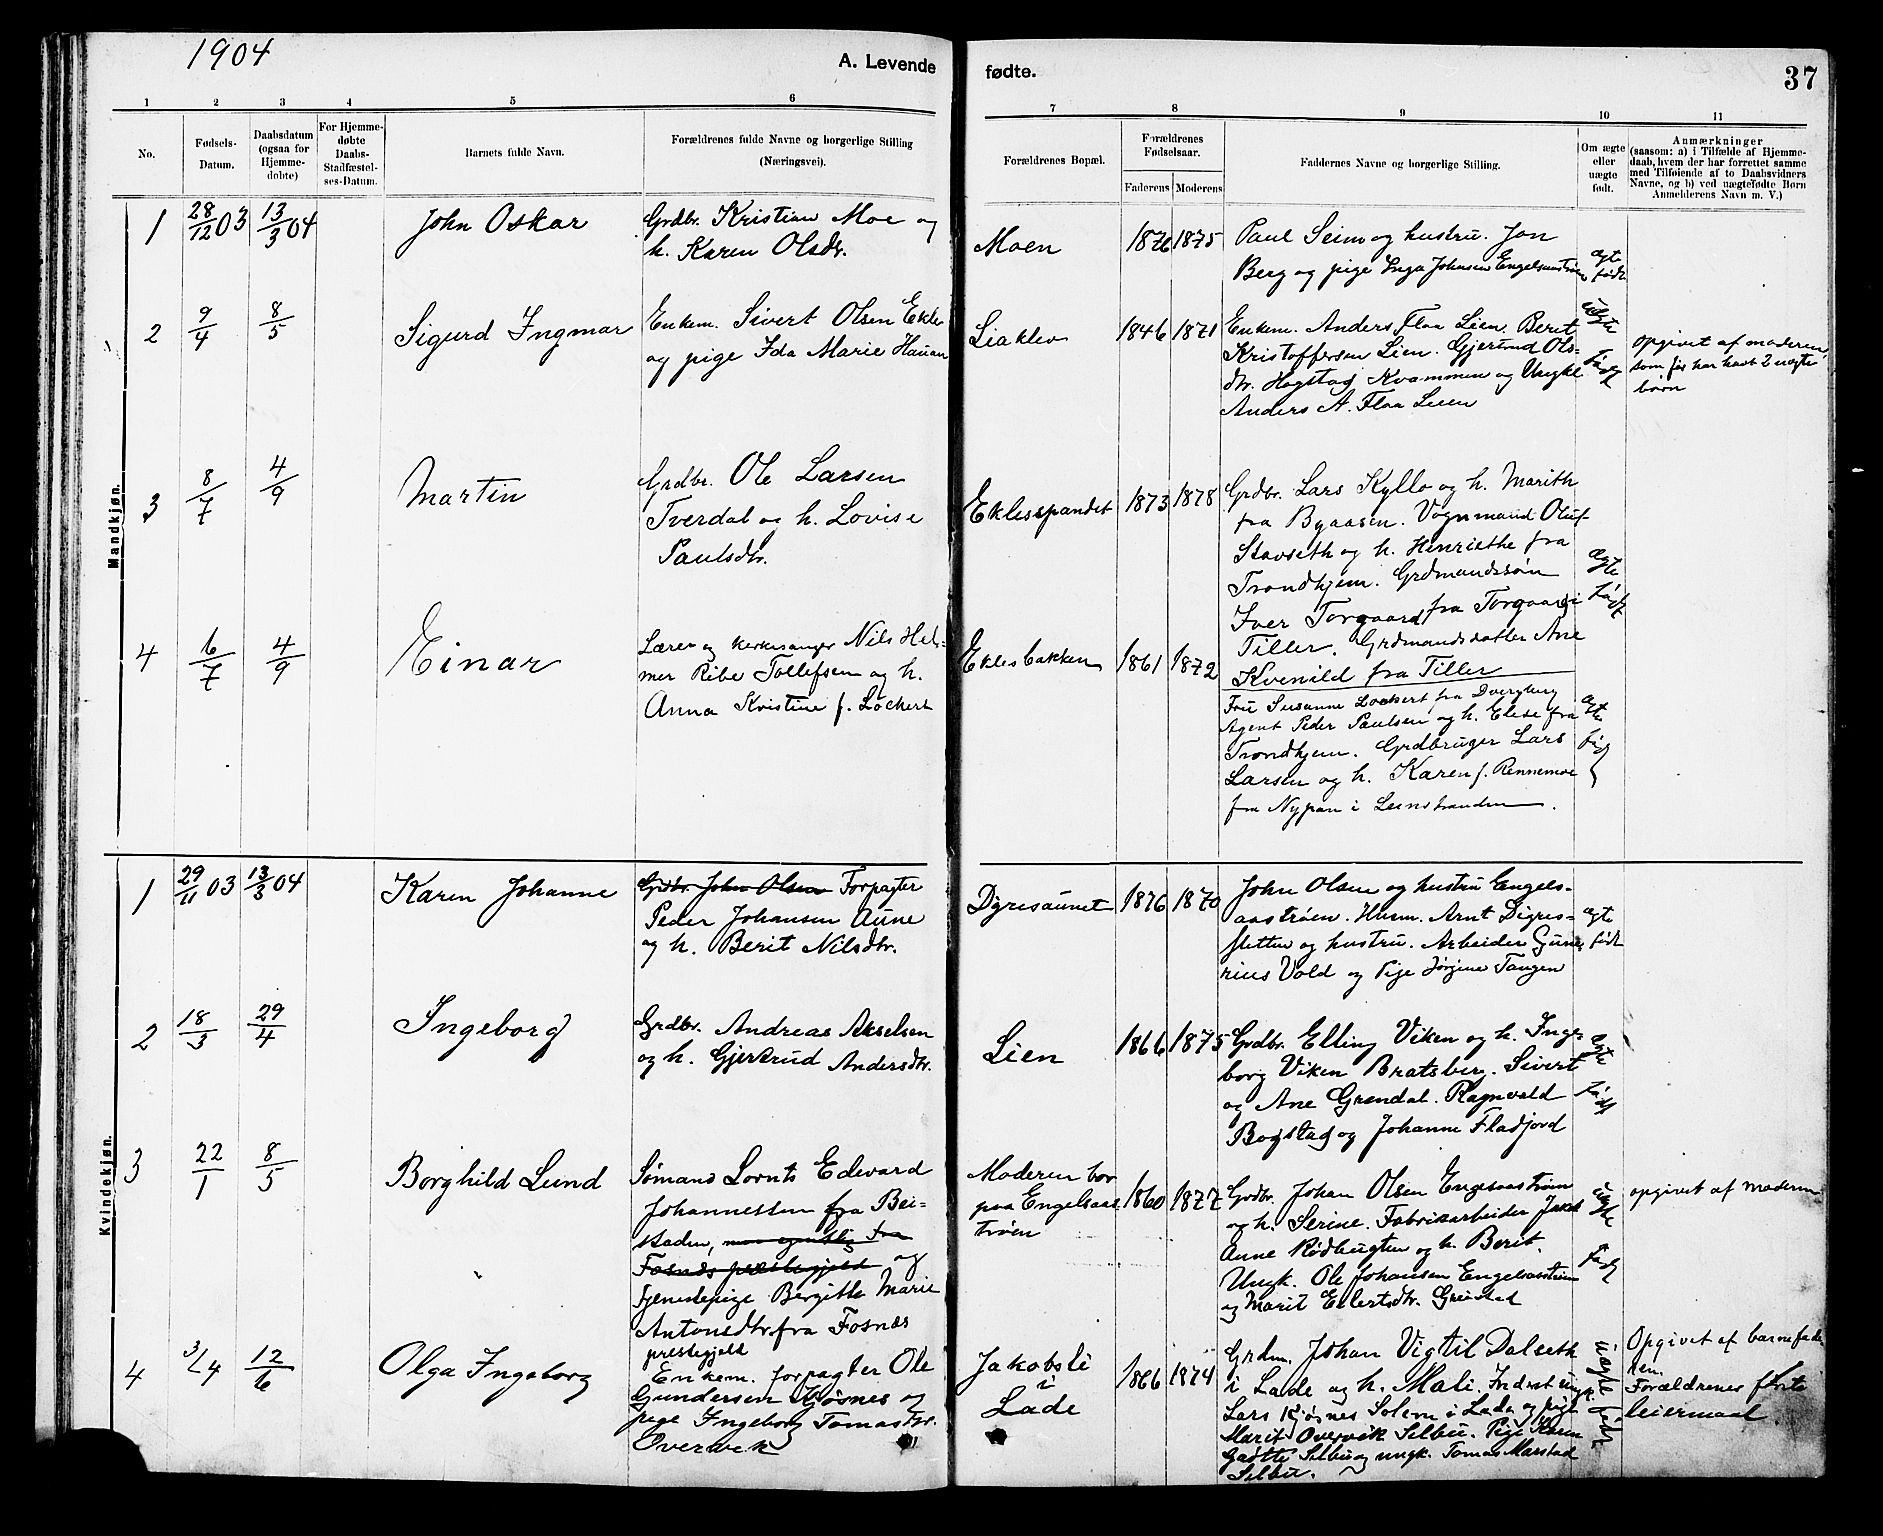 1904
A. Levende
fødte.
37
1
2
3
4
5
6
7
8
9
10
11
No.
Fødsels-
Datum.
Daabsdatum
(ogsaa for
Hjemme-
døbte)
For Hjemme-
døbte
Daabs-
Stadfæstel-
ses-Datum.
Barnets fulde Navn.
Forældrenes fulde Navne og borgerlige Stilling
(Næringsvei).
Forældrenes Bopæl.
Forældrenes
Fødselsaar.
Faderens
Moderens
Faddernes Navne og borgerlige Stilling.
Om ægte
eller
uægte
født.
Anmærkninger
(saasom: a) i Tilfælde af Hjemme-
daab, hvem der har forrettet samme
med Tilføiende af to Daabsvidners
Navne, og b) ved uægtefødte Børn
Anmelderens Navn m. V.)
Mandkjøn.
1
28/12 03
13/3 04
John Oskar
Grdbr. Kristian Moe og
h. Karen Olsdr.
Moen
1876
1875
Paul Seim og hustru. Jon
Berg og pige Inga Johnsen Engelsaastrøen
ægte
født
2
9/4
8/5
Sigurd Ingmar
Enkem. Sivert Olsen Eklev
og pige Ida Marie Hauan
Liaklev
1846
1871
Enkem. Anders Flaa Lien. Berit
Kristoffersen Lien. Gjertrud Ols-
dtr. Hogstad Kvammen og Ungkl
Anders A. Flaa Lien
uægte
født
opgivet af moderen,
som før har havt 2 uægte
børn
3
8/7
4/9
Martin
Grdbr. Ole Larsen
Tverdal og h. Lovise
Paulsdtr.
Eklesspandet
1873
1878
Grdbr. Lars Kyllo og h. Marith
fra Byaasen. Vognmand Oluf
Stavseth og h. Henriethe fra
Trondhjem. Grdmandssøn
Iver Torgaard fra Torgaard i
Tiller. Grdmandsdatter Ane
Kvenild fra Tiller
ægte
født
4
6/7
4/9
Einar
Lærer og kirkesanger Nils Hel-
mer Ribe Tollefsen og h.
Anna Kristine f. Lockert
Eklesbakken
1861
1872
Fru Susanne Lockert fra Dverberg
Agent Peder Paulsen og h. Elise fra
Trondhjem. Grdbruger Lars
Larsen og h. Karen f. Rennemoe
fra Nypan i Leinstranden
ægte
født
Kvindekjøn.
1
29/11 03
13/3 04
Karen Johanne
Grdbr. John Olsen Forpagter
Peder Johansen Aune
og h. Berit Nilsdtr.
Digresaunet
1876
1870
John Olsen og hustru Engels-
aastrøen. Husm. Arnt Digres-
sletten og hustru. Arbeider Gune-
rius Vold og Pige Jørgine Tangen
ægte
født
2
18/3
29/4
Ingeborg
Grdbr. Andreas Akselsen
og h. Gjertrud Andersdtr.
Lien
1866
1875
Grdbr. Elling Viken og h. Inge-
borg Viken Bratsberg. Sivert
og Ane Grendal. Ragnvald
Bogstad og Johanne Fladjord
ægte
født
3
22/1
8/5
Borghild Lund
Sømand Lornts Edevard
Johannessen fra Bei-
staden,
Fosnes præstegjeld og
tjenestepige Bergitte Marie
Antonsdtr. fra Fosnes
prestegjeld
Moderen bor
paa Engelsaas
trøen
1860
1877
Grdbr. Johan Olsen Engelsaastrøen
og h. Serine. Fabrikarbeider Jakob
Aune Rødhugten og h. Berit.
Ungk. Ole Johansen Engelsaastrøen
og Marit Eilertsdtr. Grøistad
uægte
født
opgivet af moderen
4
3/4
12/6
Olga Ingeborg
Enkem. forpagter Ole
Gundersen Kjøsnes og
pige Ingeborg Tomasdtr.
Overvik
Jakobsli
i
Lade
1866
1874
Grdm. Johan Vigtil Dalseth
i Lade og h. Mali. Inderst ungk.
Lars Kjøsnes Solem i Lade og pige
Marit Overvik Selbu. Pige Karen
Gjøtte Selbu og ungk. Tomas Marstad
Selbu.
uægte
født
Opgivet af barnefade-
ren.
Forældrenes første
leiermaal.